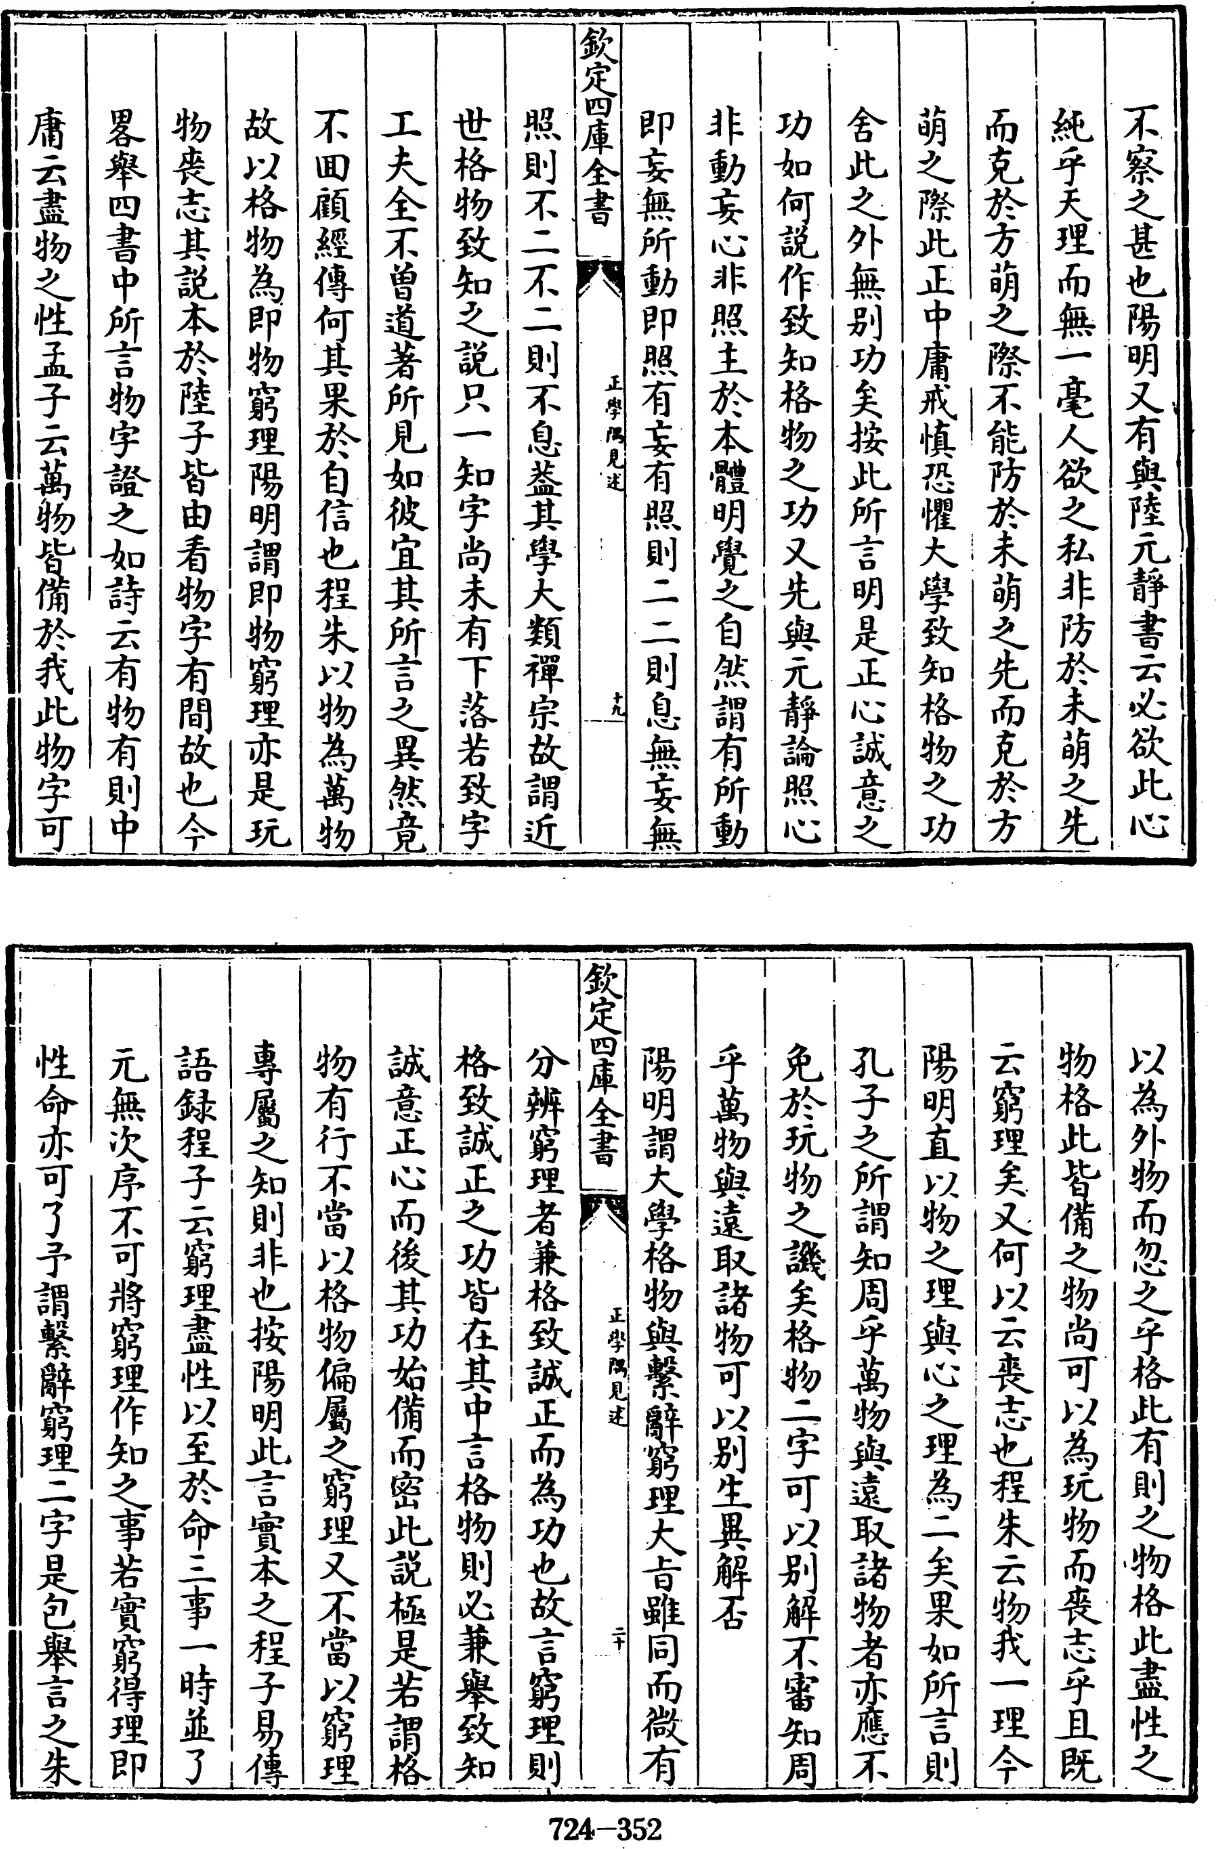 不察之甚也陽明又有與陸元靜書云必欲此心
純乎天理而無一毫人欲之私非防於未萌之先
而克於方萌之際不能防於未萌之先而克於方
萌之際此正中庸戒慎恐懼大學致知格物之功
舍此之外無别功矣按此所言明是正心誠意之
功如何說作致知格物之功又先與元靜論照心
非動妄心非照主於本體明覺之自然謂有所動
即妄無所動即照有妄有照則二二則息無妄無
欽定四庫全書
正學隅見述
十九
照則不二不二則不息葢其學大類禪宗故謂近
世格物致知之說只一知字尚未有下落若致字
工夫全不曾道著所見如彼宜其所言之異然竟
不回顧經傳何其果於自信也程朱以物為萬物
故以格物為即物窮理陽明謂即物窮理亦是玩
物喪志其說本於陸子皆由看物字有間故也今
畧舉四書中所言物字證之如詩云有物有則中
庸云盡物之性孟子云萬物皆備於我此物字可
以為外物而忽之乎格此有則之物格此盡性之
物格此皆備之物尚可以為玩物而喪志乎且既
云窮理矣又何以云喪志也程朱云物我一理今
陽明直以物之理與心之理為二矣果如所言則
孔子之所謂知周乎萬物與遠取諸物者亦應不
免於玩物之譏矣格物二字可以别解不審知周
乎萬物與遠取諸物可以别生異解否
陽明謂大學格物與繫辭窮理大旨雖同而微有
欽定四庫全書
正學隅見述
二十
分辨窮理者兼格致誠正而為功也故言窮理則
格致誠正之功皆在其中言格物則必兼舉致知
誠意正心而後其功始備而密此說極是若謂格
物有行不當以格物偏屬之窮理又不當以窮理
專屬之知則非也按陽明此言實本之程子易傳
語録程子云窮理盡性以至於命三事一時並了
元無次序不可將窮理作知之事若實窮得理即
性命亦可了予謂繫辭窮理二字是包舉言之朱
724-352